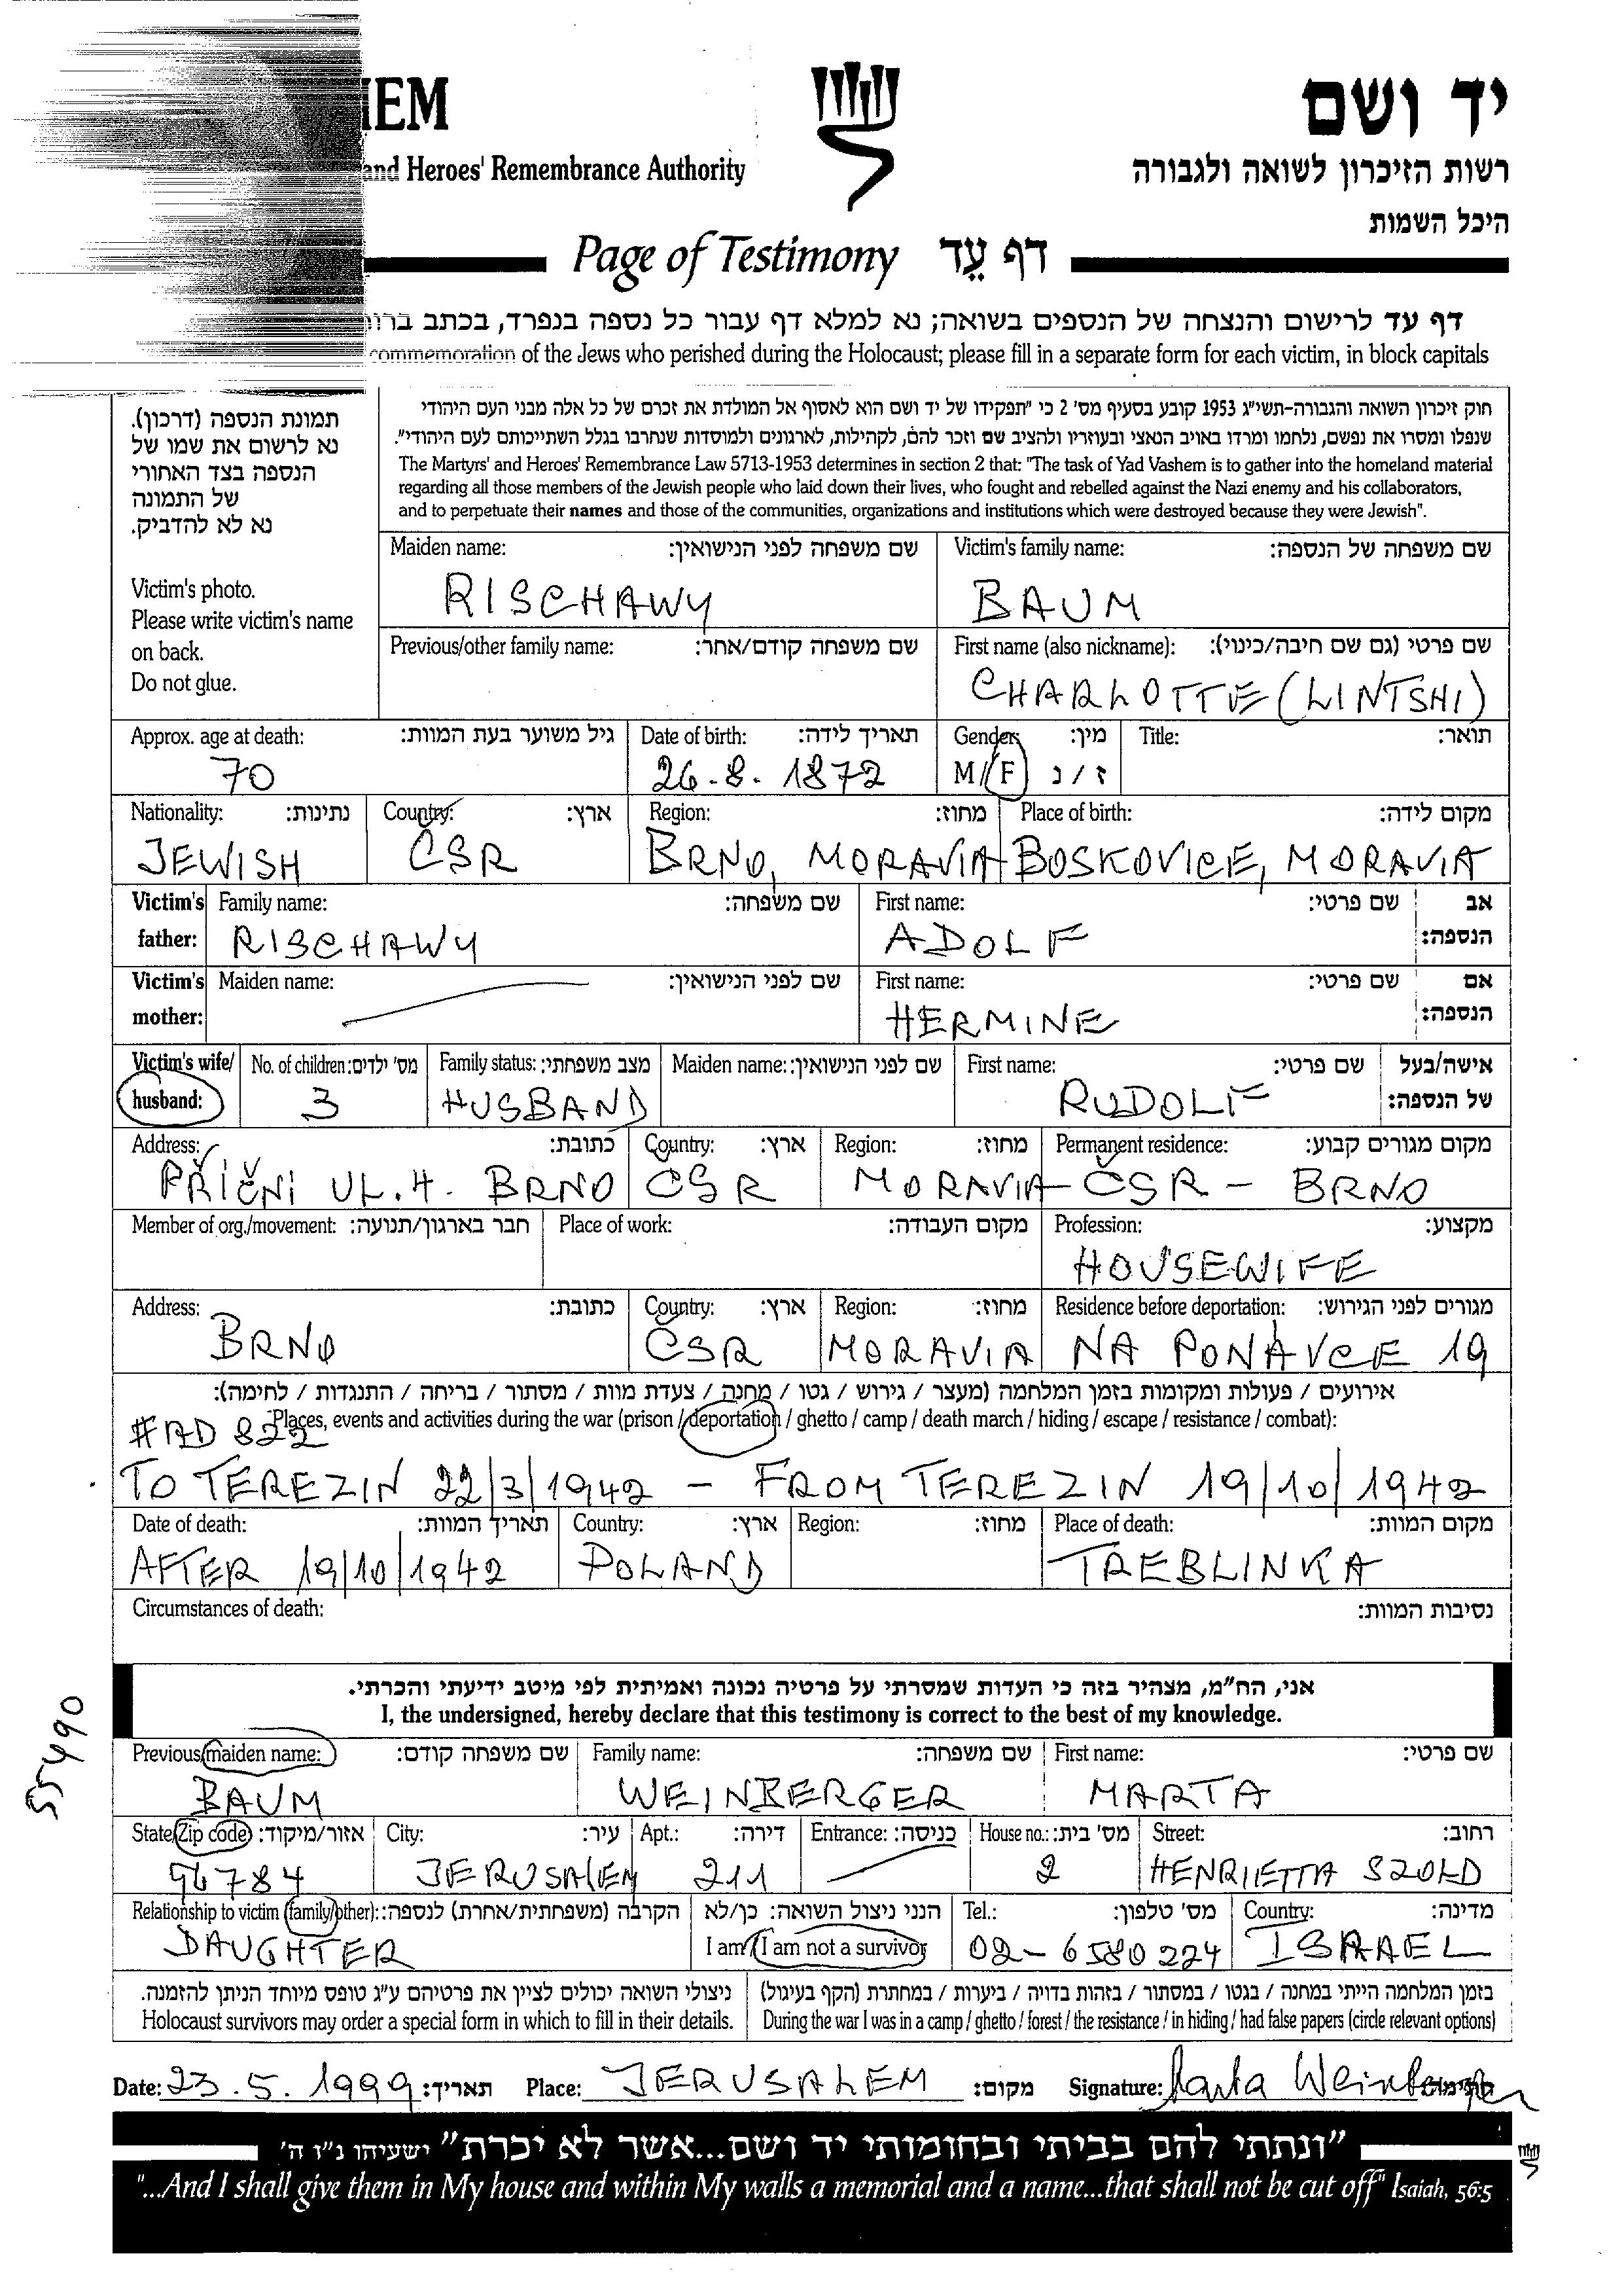 יד ושם
רשות הזיכרון לשואה ולגבורה
and Heroes' Remembrance Authority
היכל השמות
Page of Testimony דף עֵד
דף עד לרישום והנצחה של הנספים בשואה; נא למלא דף עבור כל נספה בנפרד, בכתב
commemoration of the Jews who perished during the Holocaust; please fill in a separate form for each victim, in block capitals
תמונת הנספה (דרכון).
נא לרשום את שמו של
הנספה בצד האחורי
של התמונה
נא לא להדביק.
Victim's photo.
Please write victim's name
on back.
Do not glue.
חוק זיכרון השואה והגבורה-תשי"ג 1953 קובע בסעיף מס' 2 כי "תפקידו של יד ושם הוא לאסוף אל המולדת את זכרם של כל אלה מבני העם היהודי
שנפלו ומסרו את נפשם, נלחמו ומרדו באויב הנאצי ובעוזריו ולהציב שם וזכר להם, לקהילות, לארגונים ולמוסדות שנחרבו בגלל השתייכותם לעם היהודי".
The Martyrs' and Heroes' Remembrance Law 5713-1953 determines in section 2 that: "The task of Yad Vashem is to gather into the homeland material
regarding all those members of the Jewish people who laid down their lives, who fought and rebelled against the Nazi enemy and his collaborators,
and to perpetuate their names and those of the communities, organizations and institutions which were destroyed because they were Jewish".
Maiden name: שם משפחה לפני הנישואין: Victim's family name: שם משפחה של הנספה:
RISCHAWY BAUM
Previous/other family name: שם משפחה קודם/אחר: First name (also nickname): שם פרטי (גם שם חיבה/כינוי):
CHARLOTTE (LINTSHI)
Approx. age at death: גיל משוער בעת המוות: Date of birth: תאריך לידה: Gender: מין: Title: תואר:
70 26.8.1872 M/F ז/נ
Nationality: נתינות: Country: ארץ: Region: מחוז: Place of birth: מקום לידה:
JEWISH ČSR BRNO, MORAVIA BOSKOVICE, MORAVIA
Victim's Family name: שם משפחה: First name: שם פרטי: אב
father: RISCHAWY ADOLF הנספה:
Victim's Maiden name: שם לפני הנישואין: First name: שם פרטי: אם
mother: HERMINE הנספה:
Victim's wife/ No. of children: מס' ילדים: Family status: מצב משפחתי: Maiden name: שם לפני הנישואין: First name: שם פרטי: אישה/בעל
husband: 3 HUSBAND RUDOLF של הנספה:
Address: כתובת: Country: ארץ: Region: מחוז: Permanent residence: מקום מגורים קבוע:
PŘÍČNÍ UL. 4. BRNO ČSR MORAVIA ČSR - BRNO
Member of org./movement: חבר בארגון/תנועה: Place of work: מקום העבודה: Profession: מקצוע:
HOUSEWIFE
Address: כתובת: Country: ארץ: Region: מחוז: Residence before deportation: מגורים לפני הגירוש:
BRNO ČSR MORAVIA NA PONÁVCE 19
אירועים / פעולות ומקומות בזמן המלחמה (מעצר / גירוש / גטו / מחנה / צעדת מוות / מסתור / בריחה / התנגדות / לחימה):
Places, events and activities during the war (prison / deportation / ghetto / camp / death march / hiding / escape / resistance / combat):
#AD 822
TO TEREZIN 22/3/1942 - FROM TEREZIN 19/10/1942
Date of death: תאריך המוות: Country: ארץ: Region: מחוז: Place of death: מקום המוות:
AFTER 19/10/1942 POLAND TREBLINKA
Circumstances of death: נסיבות המוות:
אני, הח"מ, מצהיר בזה כי העדות שמסרתי על פרטיה נכונה ואמיתית לפי מיטב ידיעתי והכרתי.
I, the undersigned, hereby declare that this testimony is correct to the best of my knowledge.
55490
Previous/maiden name: שם משפחה קודם: Family name: שם משפחה: First name: שם פרטי:
BAUM WEINBERGER MARTA
State/Zip code: אזור/מיקוד: City: עיר: Apt.: דירה: Entrance: כניסה: House no.: מס' בית: Street: רחוב:
96784 JERUSALEM 211 2 HENRIETTA SZOLD
Relationship to victim (family/other): הקרבה (משפחתית/אחרת) לנספה: הנני ניצול השואה: כן/לא Tel.: מס' טלפון: Country: מדינה:
DAUGHTER I am/I am not a survivor 02-6580224 ISRAEL
ניצולי השואה יכולים לציין את פרטיהם ע"ג טופס מיוחד הניתן להזמנה. בזמן המלחמה הייתי במחנה / בגטו / במסתור / בזהות בדויה / ביערות / במחתרת (הקף בעיגול)
Holocaust survivors may order a special form in which to fill in their details. During the war I was in a camp / ghetto / forest / the resistance / in hiding / had false papers (circle relevant options)
Date: 23.5.1999 תאריך: Place: JERUSALEM מקום: Signature: Marta Weinberger
"ונתתי להם בביתי ובחומותי יד ושם...אשר לא יכרת" ישעיהו נ"ו ה'
"...And I shall give them in My house and within My walls a memorial and a name...that shall not be cut off" Isaiah, 56:5